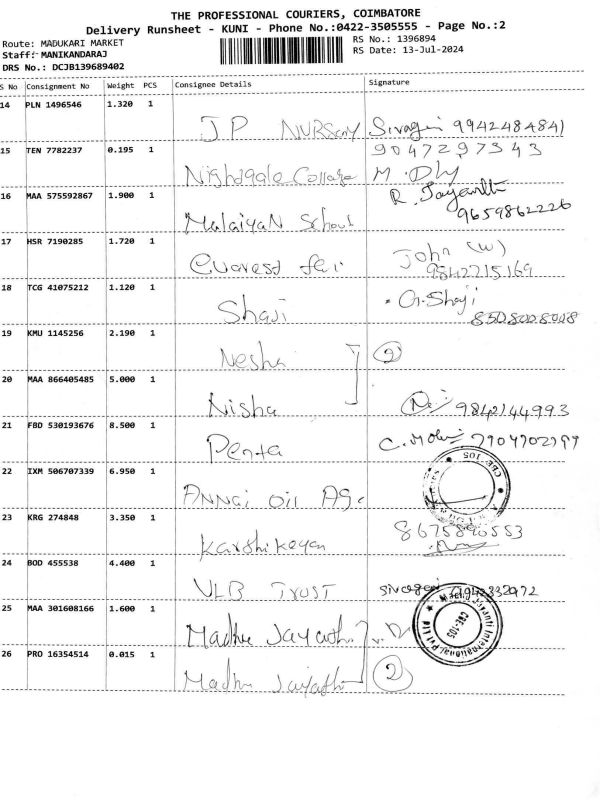 THE PROFESSIONAL COURIERS, COIMBATORE
Delivery Runsheet - KUNI - Phone No.:0422-3505555 - Page No.:2
Route: MADUKARI MARKET
RS No.: 1396894
Staff: MANIKANDARAJ
RS Date: 13-Jul-2024
DRS No.: DCJB139689402
S No Consignment No Weight PCS Consignee Details Signature
14 PLN 1496546 1.320 1
JP NURSary Sivagni 9942484841
15 TEN 7782237 0.195 1 9047297343
Nighdgale College M. Dly
16 MAA 575592867 1.900 1 R. Jayanth
Malaiyan School 9659862226
17 HSR 7190285 1.720 1 John (w)
Everest fer 9842715169
18 TCG 41075212 1.120 1 G. Shaji
Shaji 8508008008
19 KMU 1145256 2.190 1
Nesha 2
20 MAA 866405485 5.000 1
Nisha 9842144993
21 FBD 530193676 8.500 1
Penta C. Mohi
22 IXM 506707339 6.950 1 CBE-105
Annai oil Age
23 KRG 274848 3.350 1 8675890553
Karthikeyan
24 BOD 455538 4.400 1
VLB TRUST sivagami
25 MAA 301608166 1.600 1 CBE-105 International Pvt Ltd
Madhu Jayanthi
26 PRO 16354514 0.015 1
Madhu Jayanthi 2